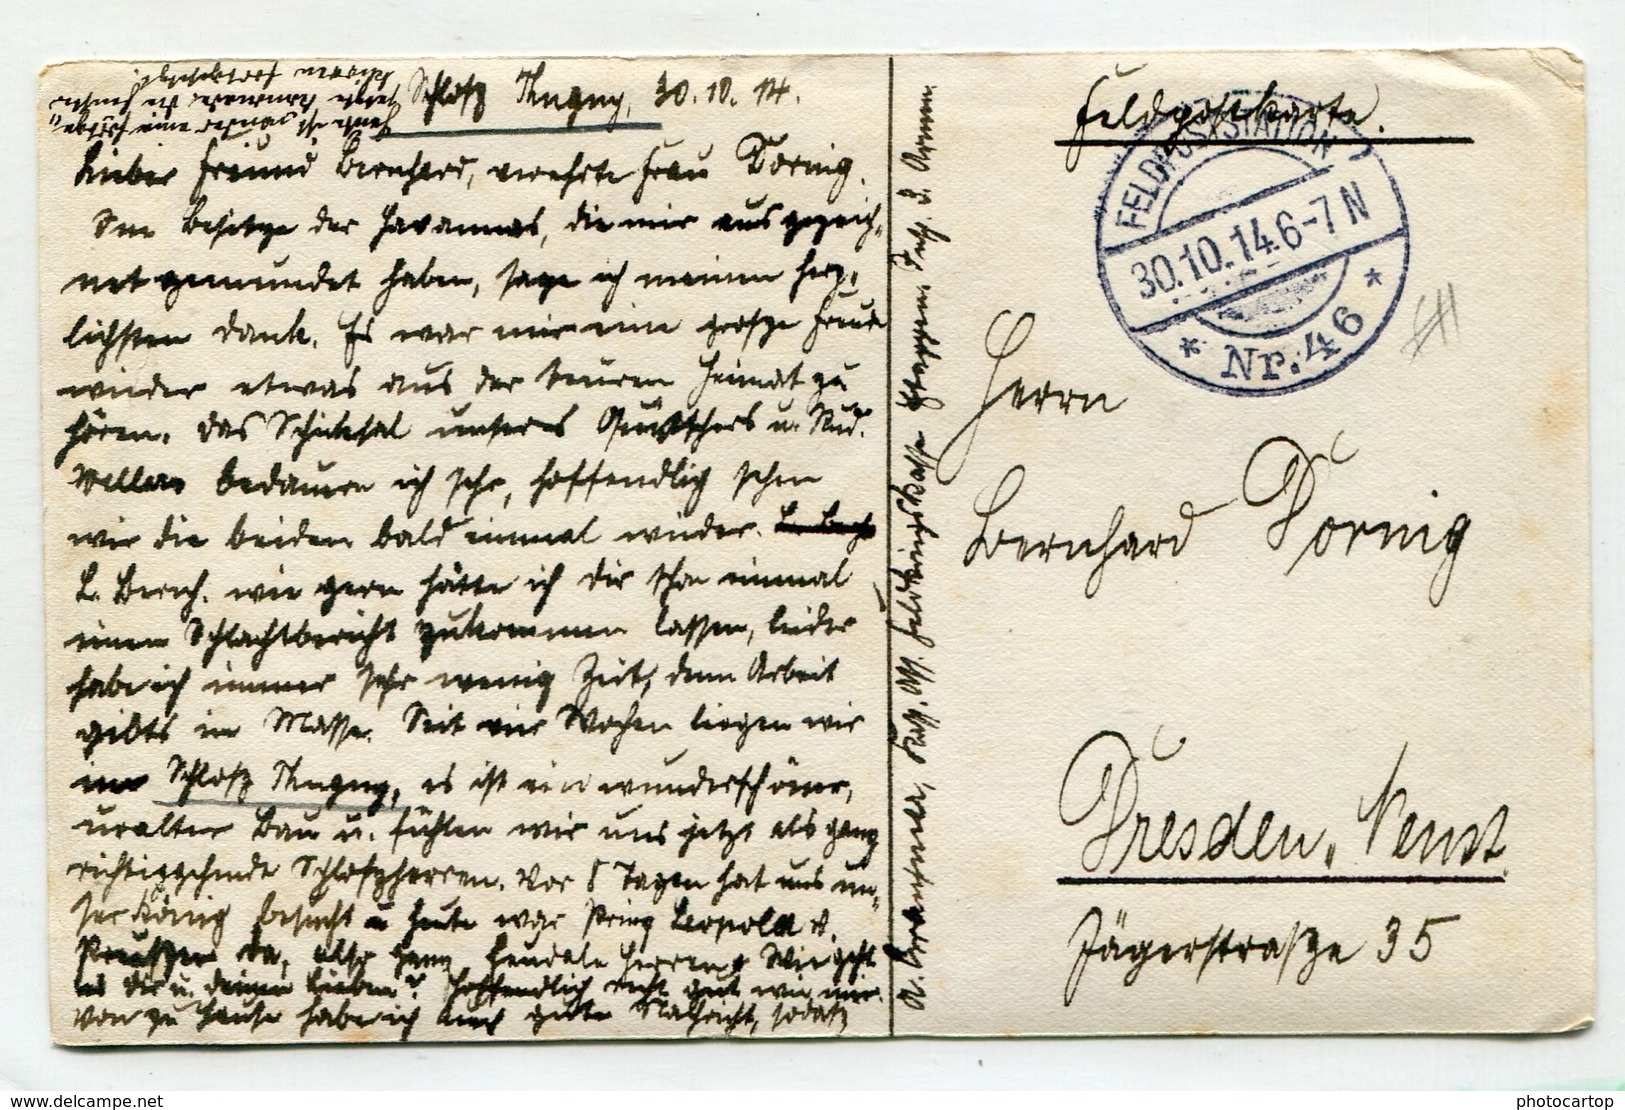 Schloß Thugny, 30.10.14.
Lieber Freund Bernhard, verehrte Frau Dornig.
Im Besitze der Havannas, die mir ausgezeich-
net gemundet haben, sage ich meinen herz-
lichsten Dank. Es war mir eine grosze Freude
wieder etwas aus der teuren Heimat zu
hören. Das Schicksal unseres u. Rud.
bedauern ich sehr, hoffendlig sehen
wir die beiden bald einmal wieder.
L. Bernh. wie gern hätte ich Dir schon einmal
einen Schlachtbericht zukommen lassen, leider
habe ich immer sehr wenig Zeit, denn Arbeit
gibts in Masse. Seit vier Wochen liegen wir
im Schloß Thugny, es ist ein wunderschöner,
uralter Bau u. fühlen wir uns jetzt als ganz
richtiggehende Schloszherren. Vor 8 Tagen hat uns un-
ser König besucht u heute war Prinz Leopold v.
Preußen da, also ganz feudale Herren. Wie geht
es Dir u. Deinen Lieben? Hoffendlich recht gut wie mir.
Von zu Hause habe ich auch gute Nachricht, sodaß
Kass. Ass. Feldkriegskasse Etappen Insp. 3. Armee
Feldpostkarte.
FELDPOSTSTATION
30.10.14.6-7N
* Nr. 46 *
Herrn
Bernhard Dornig
Dresden, Neust.
Jägerstraße 35
www.delcampe.net
photocartop